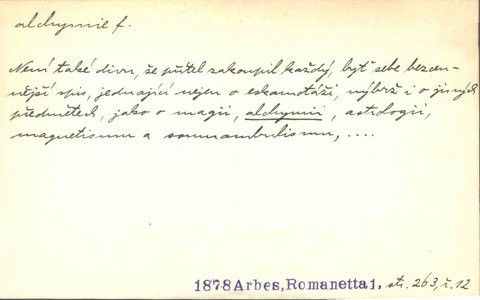 alchymie f.
Není také divu, že přítel zakoupil každý, byť sebe bezcen-
nější spis, jednající nejen o eskamotáži, nýbrž i o jiných
předmětech, jako o magii, alchymii, astrologii,
magnetismu a somnambulismu, ....
1878 Arbes, Romanetta 1, str. 263, ř. 12